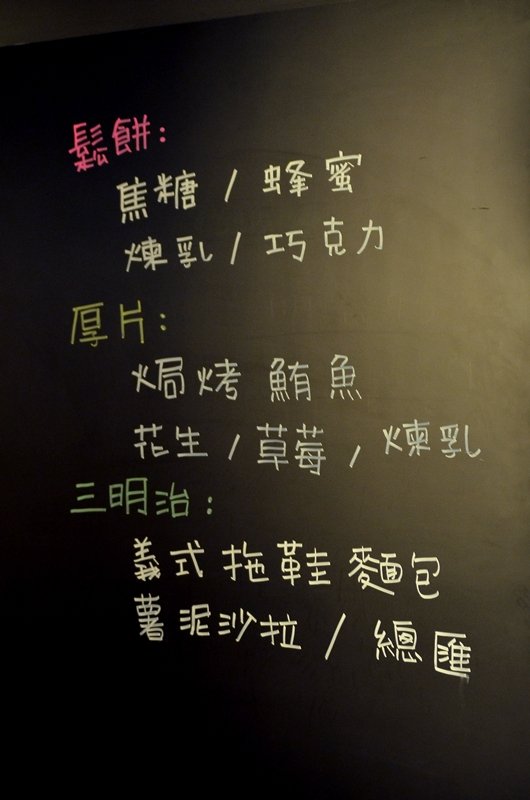 鬆餅:
焦糖 / 蜂蜜
煉乳 / 巧克力
厚片:
焗烤 鮪魚
花生 / 草莓 , 煉乳
三明治:
義式 拖鞋 麵包
薯泥沙拉 / 總匯